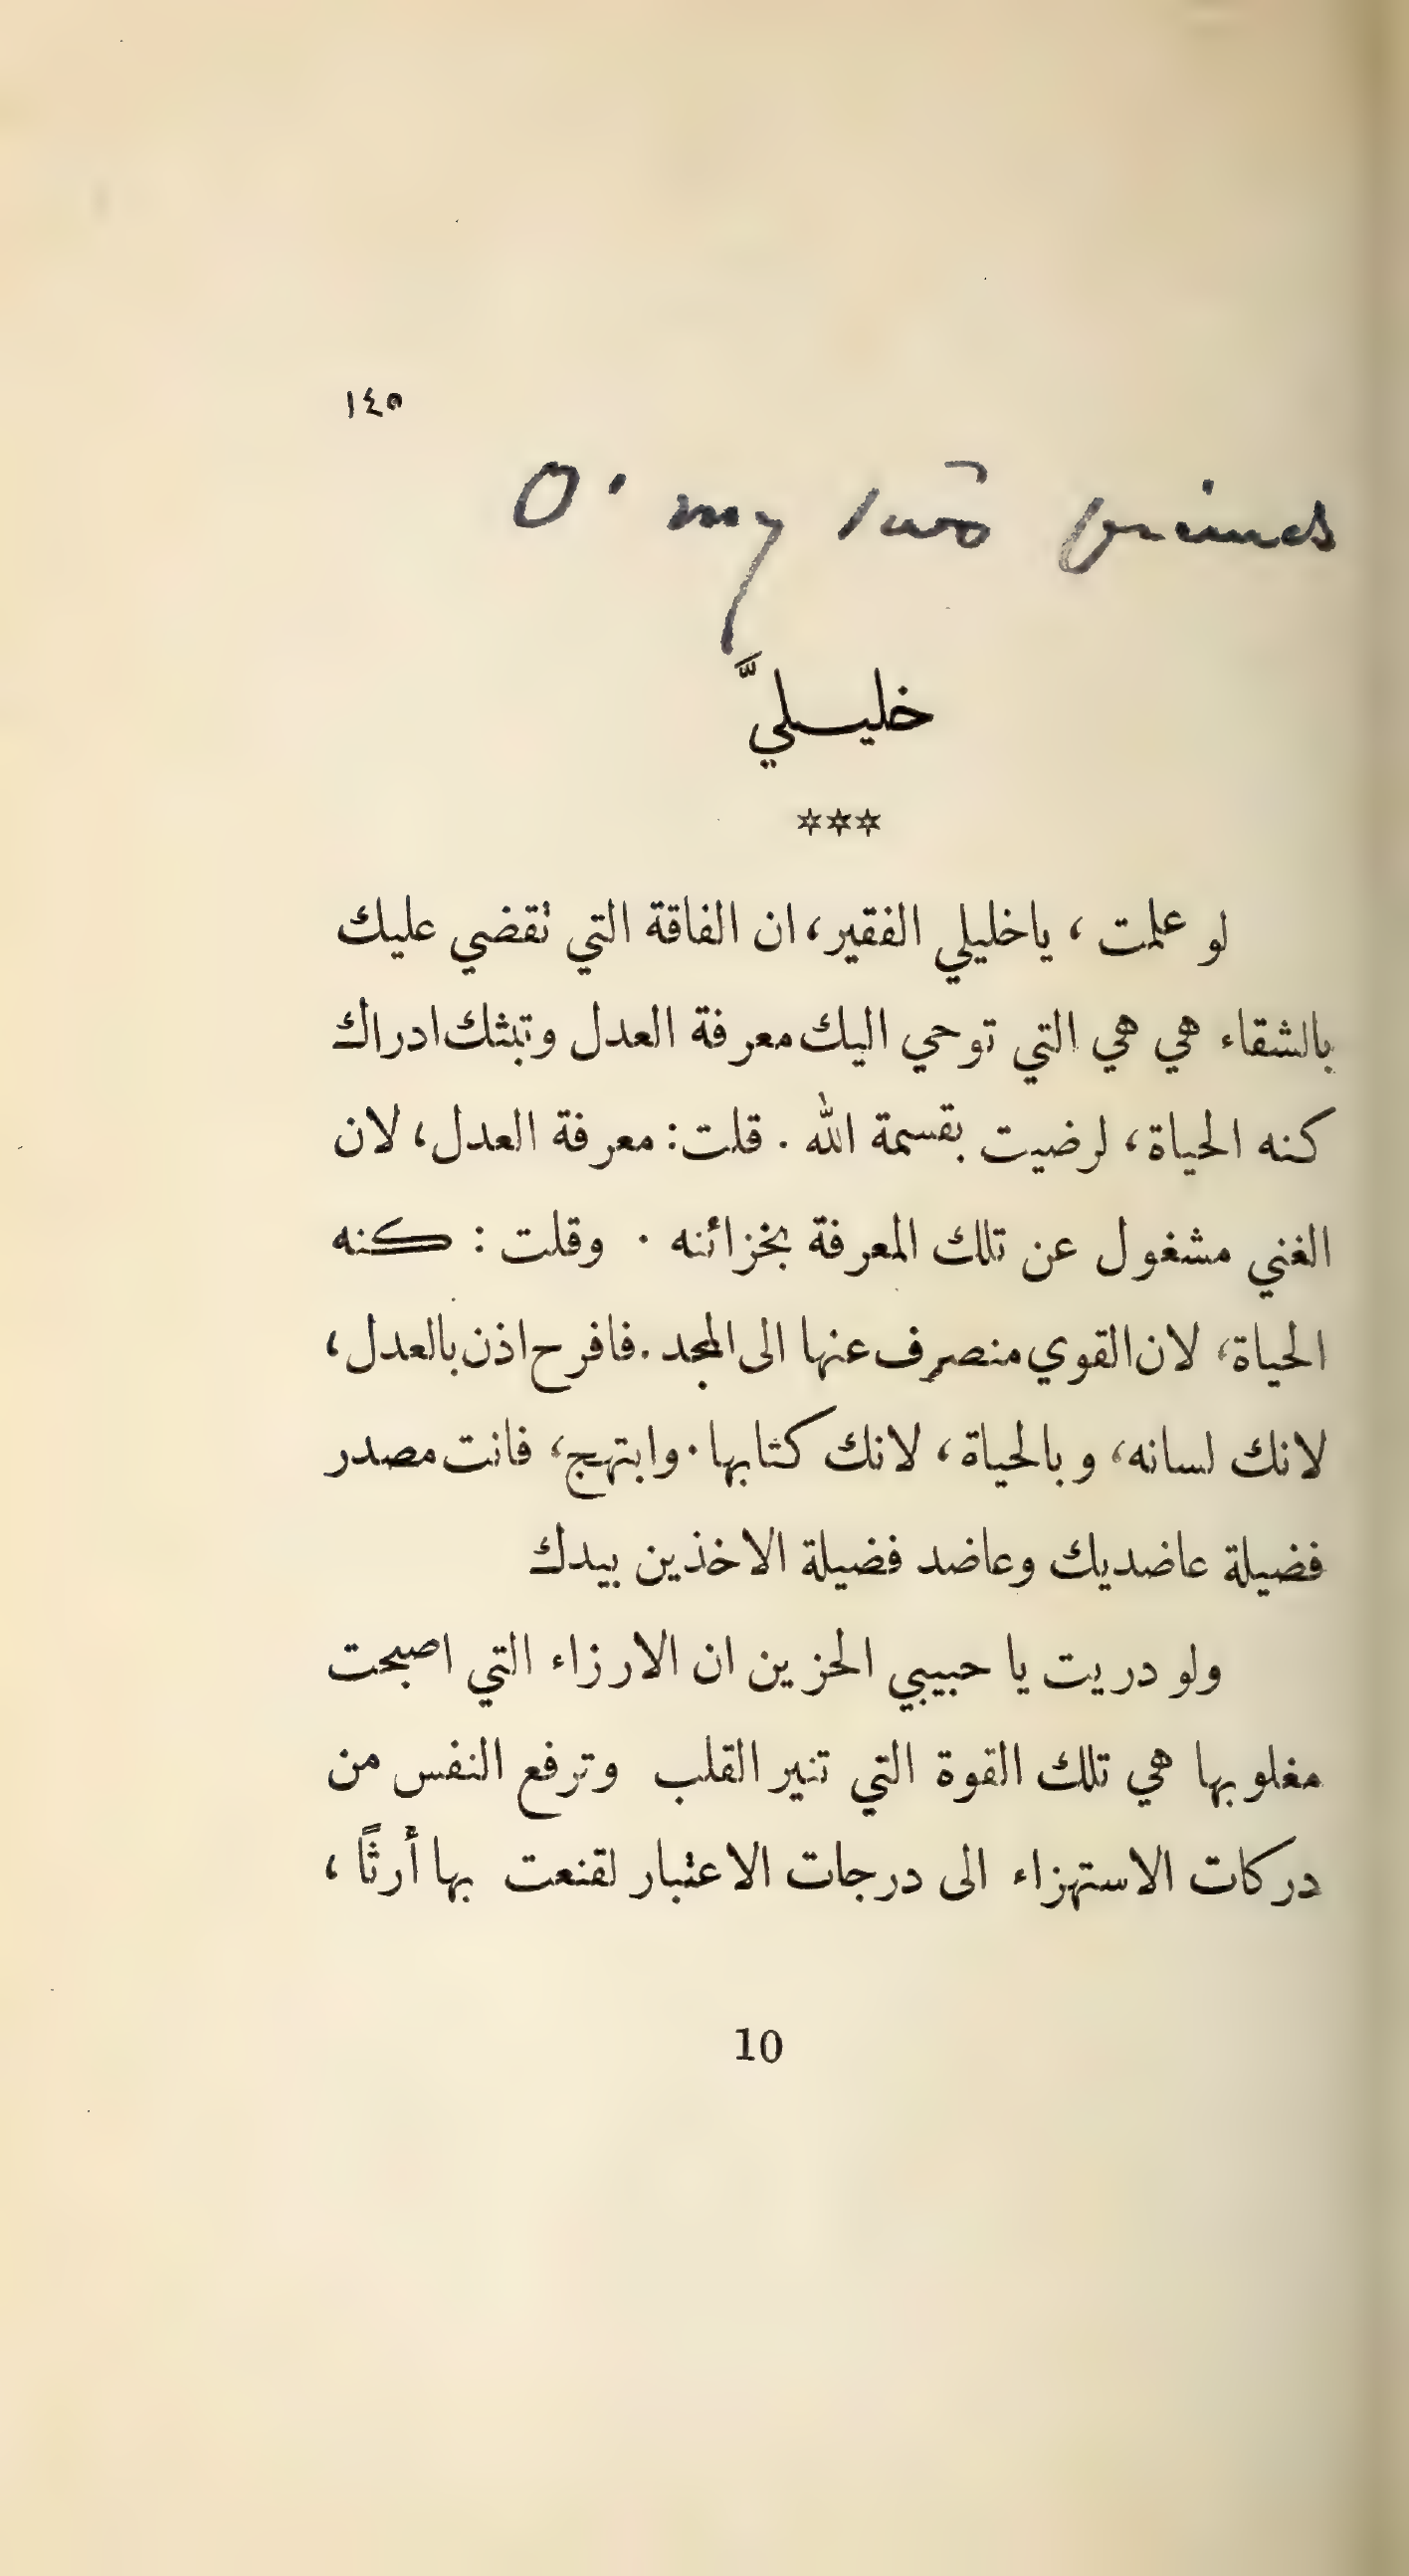 ١٤٥
O' my two friends
خليليَّ
***
لو علمت ، ياخليلي الفقير، ان الفاقة التي تقضي عليك
بالشقاء هي هي التي توحي اليك معرفة العدل وتبثك ادراك
كنه الحياة، لرضيت بقسمة الله . قلت: معرفة العدل، لان
الغني مشغول عن تلك المعرفة بخزائنه . وقلت : كنه
الحياة، لان القوي منصرف عنها الى المجد . فافرح اذن بالعدل،
لانك لسانه، وبالحياة، لانك كتابها . وابتهج، فانت مصدر
فضيلة عاضديك وعاضد فضيلة الاخذين بيدك
ولو دريت يا حبيبي الحزين ان الارزاء التي اصبحت
مغلوبها هي تلك القوة التي تنير القلب وترفع النفس من
دركات الاستهزاء الى درجات الاعتبار لقنعت بها أرثًا ،
10